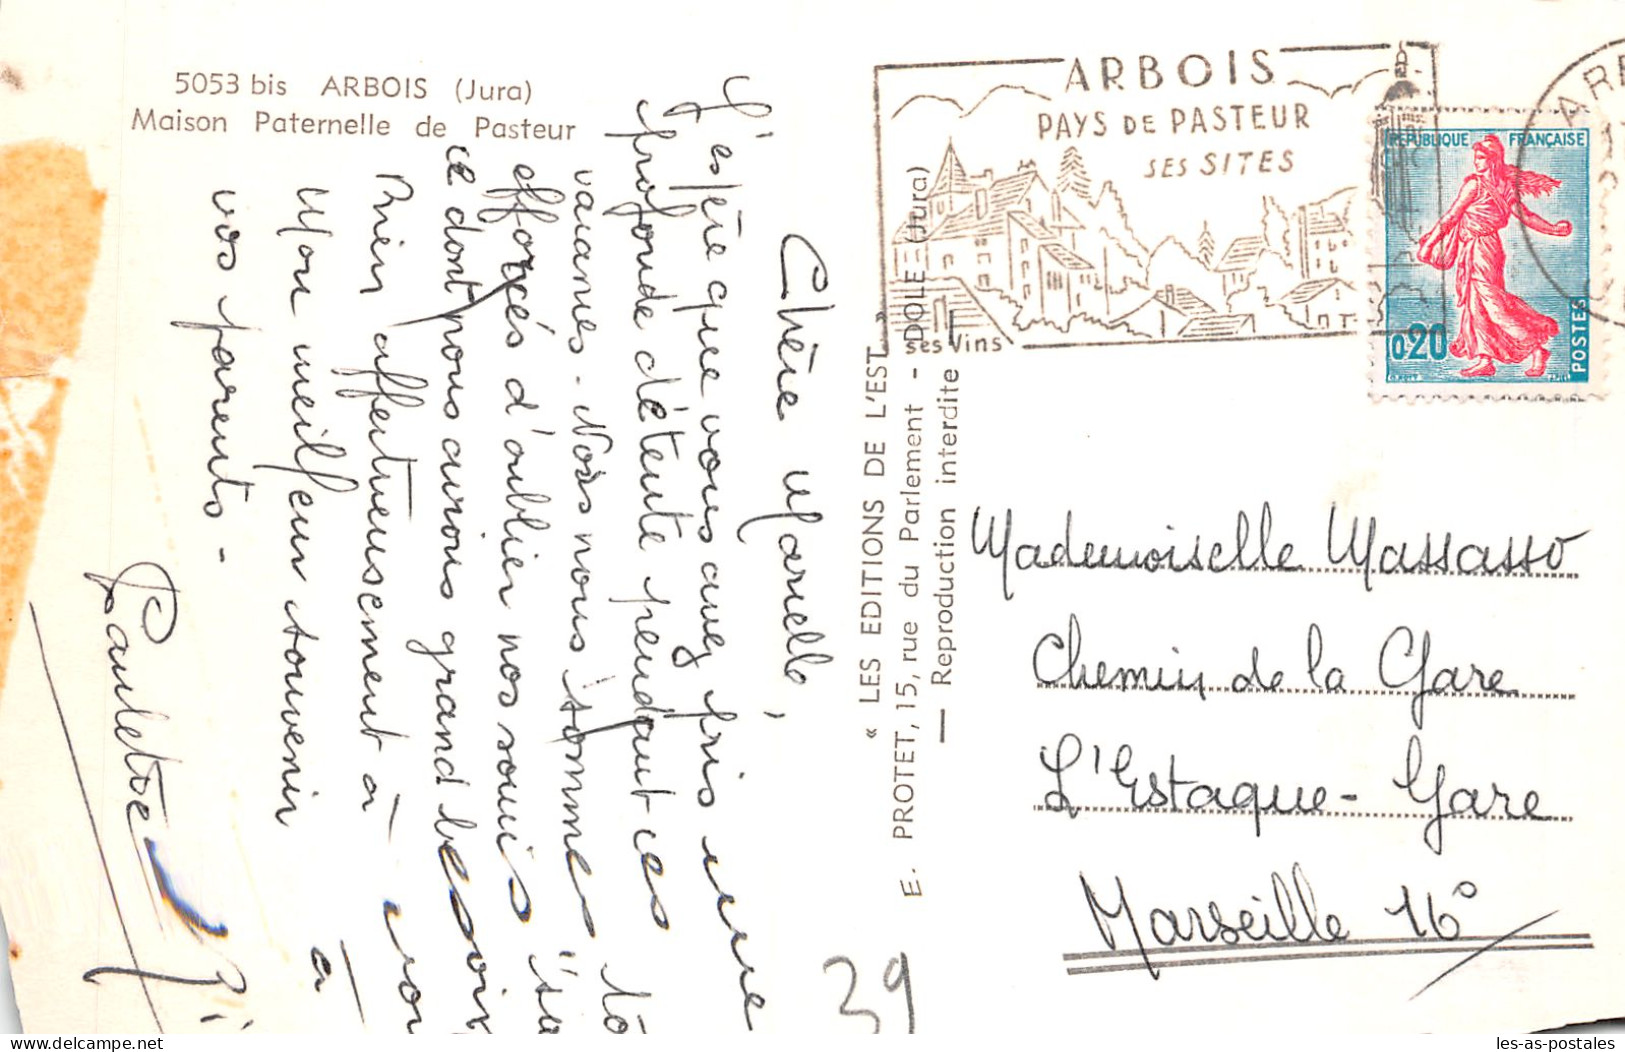 5053 bis ARBOIS (Jura)
Maison Paternelle de Pasteur
Chère Marcelle,
J'espère que vous avez pris une
profonde détente pendant ces
vacances. Nous nous sommes
efforcés d'oublier nos soucis
ce dont nous avions grand besoin
Bien affectueusement à
Mon meilleur souvenir à
vos parents -
Paulette
« LES EDITIONS DE L'EST »
E. PROTET, 15, rue du Parlement - DOLE (Jura)
— Reproduction interdite —
ARBOIS
PAYS DE PASTEUR
SES SITES
ses Vins
REPUBLIQUE FRANÇAISE
0,20
POSTES
Mademoiselle Massasso
Chemin de la Gare
L'Estaque - Gare
Marseille 16°
39
les-as-postales